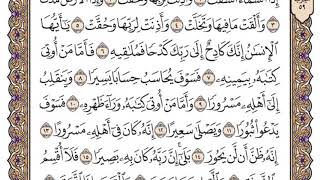 وَأَلْقَتْ مَا فِيهَا وَتَخَلَّتْ ٤ وَأَذِنَتْ لِرَبِّهَا وَحُقَّتْ ٥ يَٰٓأَيُّهَا
ٱلْإِنسَٰنُ إِنَّكَ كَادِحٌ إِلَىٰ رَبِّكَ كَدْحًا فَمُلَٰقِيهِ ٦ فَأَمَّا مَنْ أُوتِيَ
كِتَٰبَهُۥ بِيَمِينِهِۦ ٧ فَسَوْفَ يُحَاسَبُ حِسَابًا يَسِيرًا ٨ وَيَنقَلِبُ
إِلَىٰٓ أَهْلِهِۦ مَسْرُورًا ٩ وَأَمَّا مَنْ أُوتِيَ كِتَٰبَهُۥ وَرَآءَ ظَهْرِهِۦ ١٠ فَسَوْفَ
يَدْعُوا۟ ثُبُورًا ١١ وَيَصْلَىٰ سَعِيرًا ١٢ إِنَّهُۥ كَانَ فِيٓ أَهْلِهِۦ مَسْرُورًا ١٣
إِنَّهُۥ ظَنَّ أَن لَّن يَحُورَ ١٤ بَلَىٰٓ إِنَّ رَبَّهُۥ كَانَ بِهِۦ بَصِيرًا ١٥ فَلَآ أُقْسِمُ